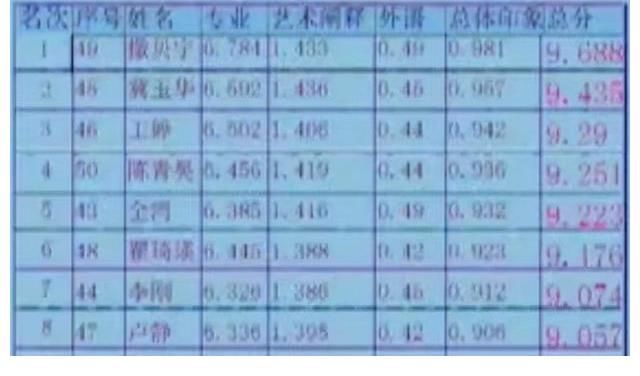 名次 序号 姓名 专业 艺术阐释 外语 总体印象 总分
1 49 撒贝宁 6.784 1.433 0.49 0.981 9.688
2 45 冀玉华 6.592 1.436 0.45 0.957 9.435
3 46 6.502 1.406 0.44 0.942 9.29
4 50 6.456 1.419 0.44 0.936 9.251
5 43 6.385 1.416 0.49 0.932 9.223
6 48 6.445 1.388 0.42 0.923 9.176
7 44 李刚 6.326 1.386 0.45 0.912 9.074
8 47 卢静 6.336 1.395 0.42 0.906 9.057